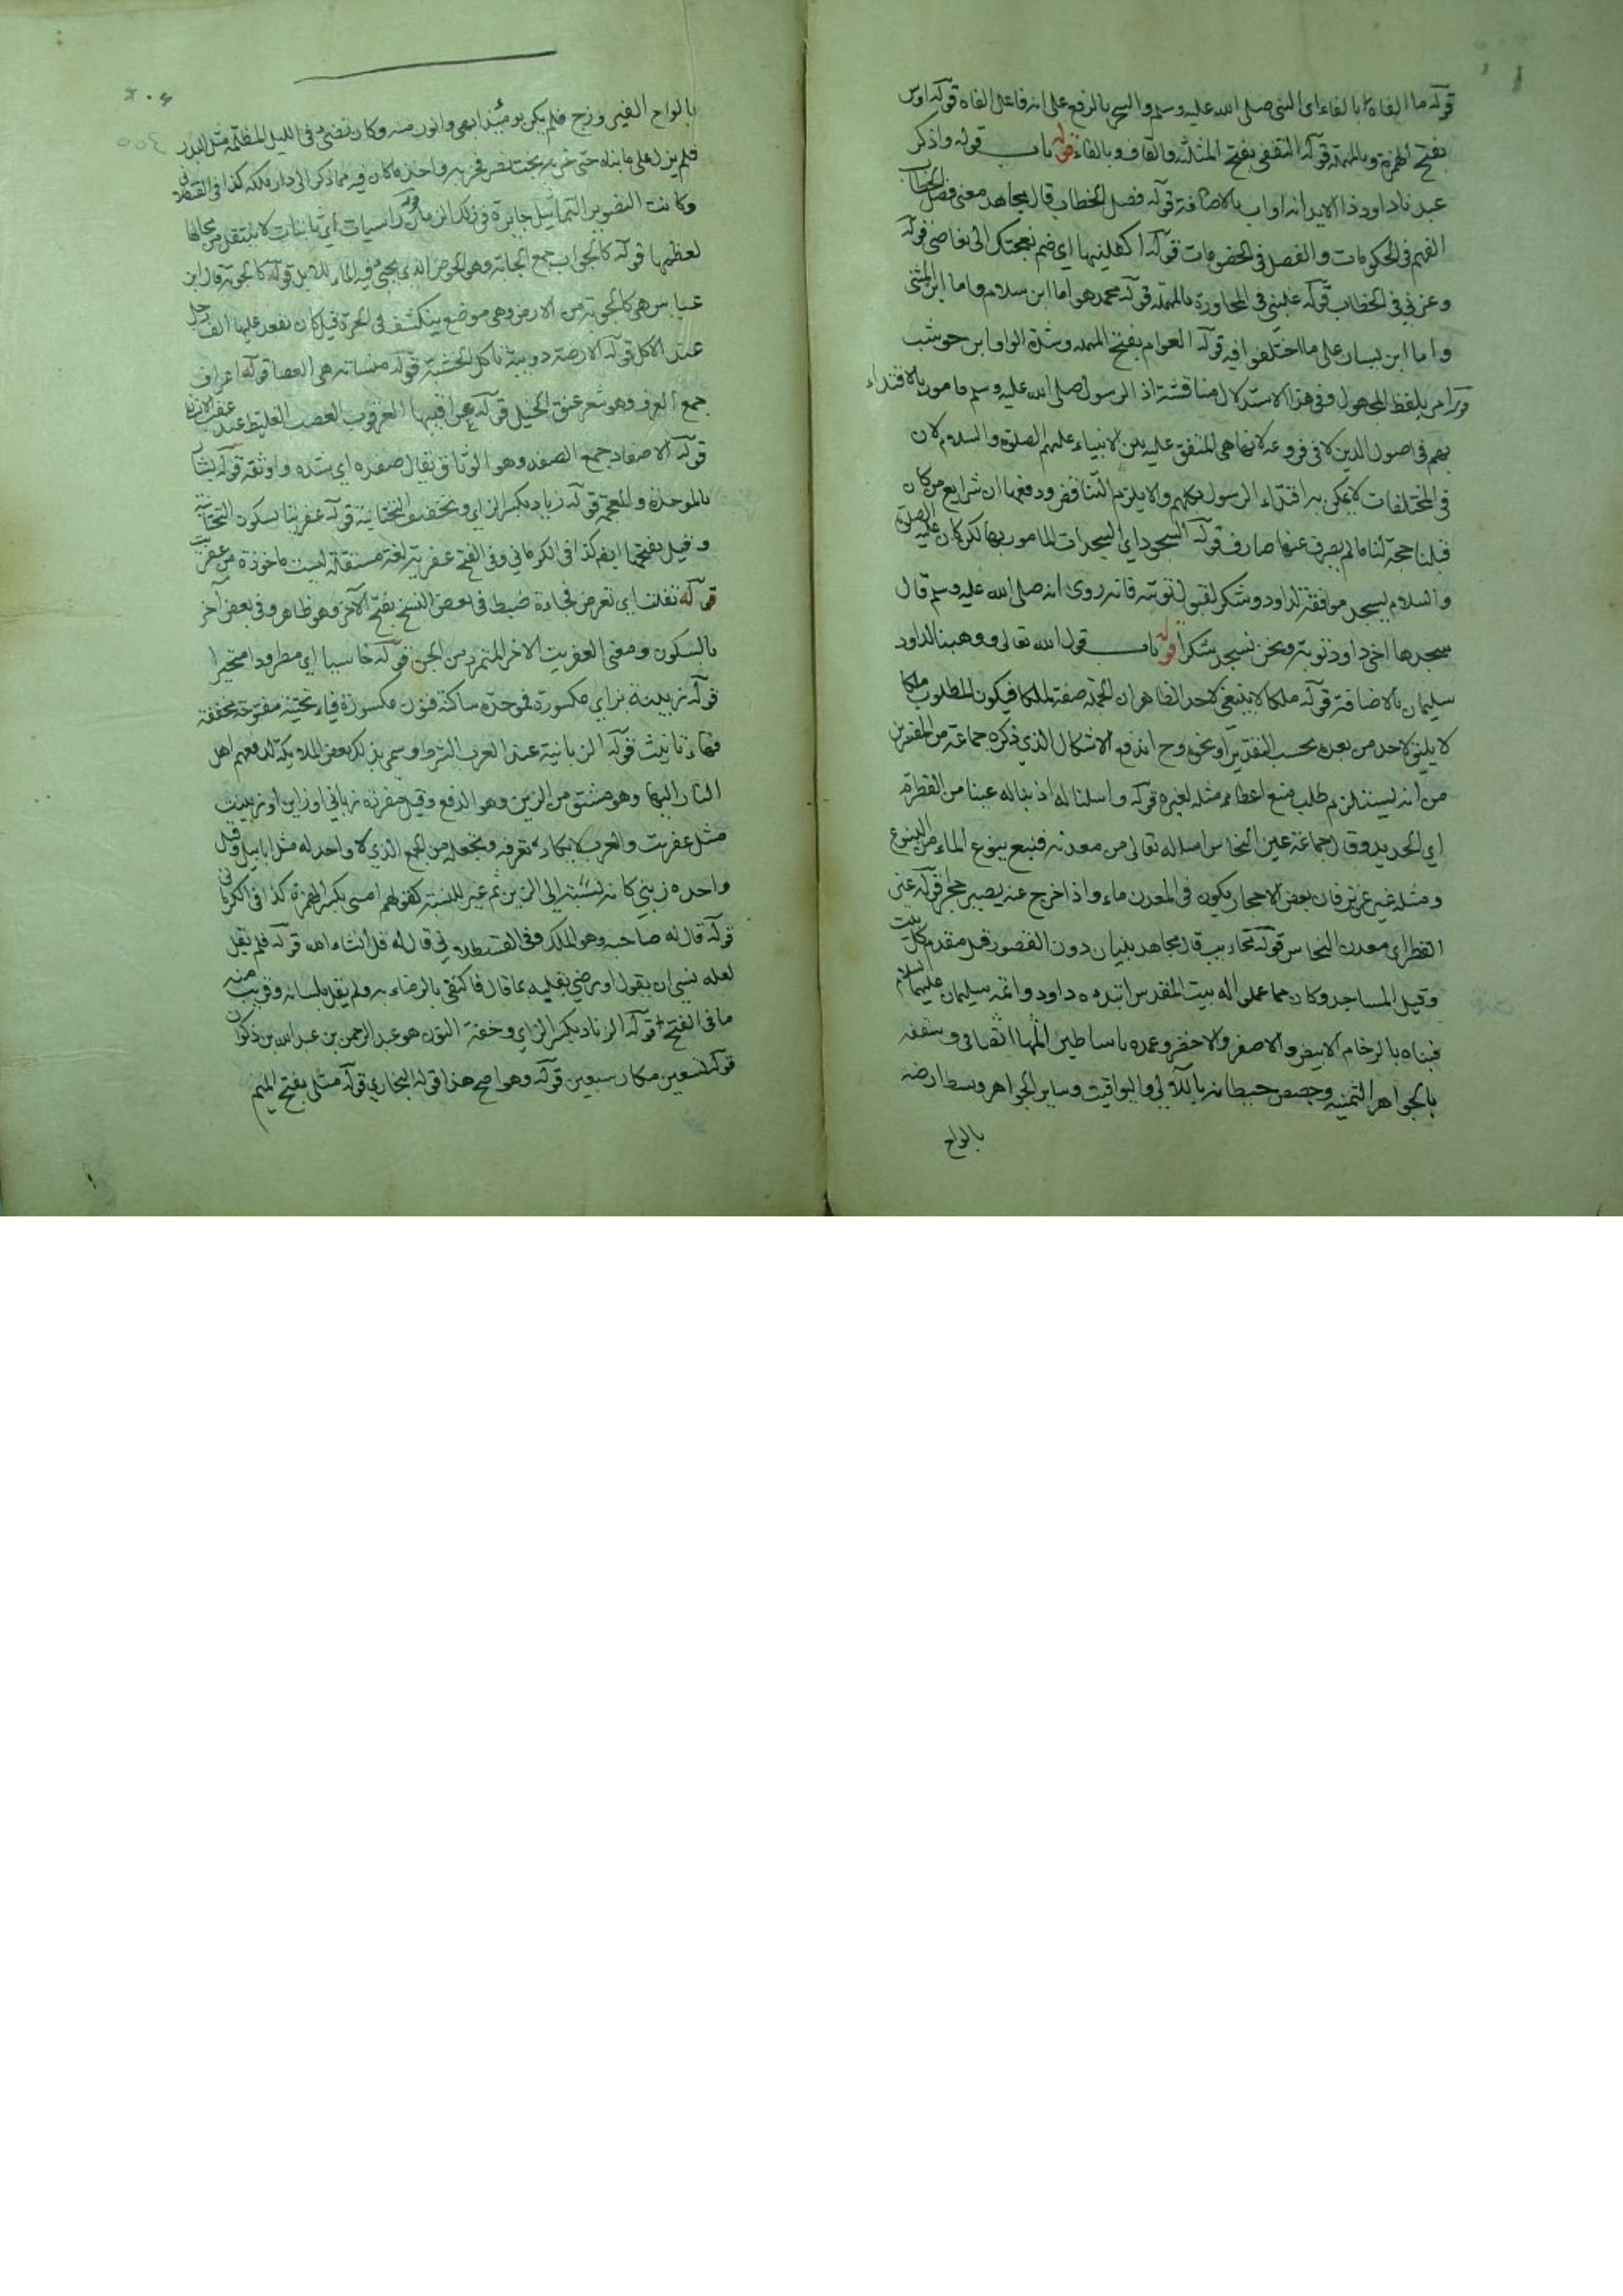 قوله ما الفاه بالفاء اي النبي صلى الله عليه وسلم والسحر بالرفع على انه فاعل الفاه قوله اوس
بفتح الهمزة وبالمهملة قوله الثقفي بفتح المثلثة والقاف وبالفاء قوله باب قوله واذكر
عبدنا داود ذا الايد انه اواب بالاضافة قوله فصل الخطاب قال مجاهد معنى فصل الخطاب
الفهم في الحكومات والفصل في الخصومات قوله اكفلنيها اي ضم نعجتك الى نعاجي قوله
وعزني في الخطاب قوله غلبني في المحاورة بالمهملة قوله محمد هو اما ابن سلام واما ابن المثنى
واما ابن بسار على ما اختلفوا فيه قوله العوام بفتح المهملة وشدة الواو ابن حوشب
قوله امر بلفظ المجهول وفي هذا الاستدلال مناقشة اذ الرسول صلى الله عليه وسلم مامور بالاقتداء
بهم في اصول الدين لا في فروعه لانها هي المتفق عليه بين الانبياء عليهم الصلوة والسلام لان
في المختلفات لا يمكن به اقتداء الرسول بكلهم والا يلزم التناقض ودفع بان شرايع من كان
قبلنا حجة لنا ما لم يصرف عنها صارف قوله السجود اي السجدات المامور بها لكن كان عليه الصلوة
والسلام يسجد موافقة لداود وشكر لقبول توبته فانه روي انه صلى الله عليه وسلم قال
سجدها اخي داود توبة ونحن نسجد شكرا قوله باب قول الله تعالى ووهبنا لداود
سليمان بالاضافة قوله ملكا لا ينبغي لاحد الظاهر ان الجملة صفة لملكا فيكون المطلوب ملكا
لا يليق لاحد من بعده بحسب التقدير او نحوه وح اندفع الاشكال الذي ذكره جماعة من المفسرين
من انه يستلزم طلب منع اعطاء مثله لغيره قوله واسلنا له اذبنا له عينا من القطر
اي الحديد وقال جماعة عين النحاس اساله تعالى من معدنه فنبع ينوع الماء من الينبوع
ومثله غير عزيز فان بعض الاحجار يكون في المعدن ماء واذا اخرج عنه يصير حجرا قوله عين
القطر اي معدن النحاس قوله محاريب قال مجاهد بنيان دون القصور قيل مقدم كل بيت
وقيل المساجد وكان مما عملوا له بيت المقدس ابتداه داود واتمه سليمان عليهما السلام
فبناه بالرخام الابيض والاصفر والاخضر وعمده باساطين المها الصافي وسقفه
بالجواهر الثمينة وجصص حيطانه باللآلي واليواقيت وساير الجواهر وبسط ارضه
بالواح
بالواح الفيروزج فلم يكن يومئذ ابهى وانور منه وكان تضيء في الليل المظلمة مثل البدر
فلم يزل على ما بناه حتى خربه بخت نصر فخربه واخذ ما كان فيه مما ذكر الى دار ملكه كذا في القسطلاني
وكانت التصوير التماثيل جايزة في ذلك الزمان قوله راسيات اي ثابتات لا ينتقل من محالها
لعظمها قوله كالجواب جمع الجابية وهو الحوض الذي يجبى فيه الماء للابل قوله كالجوبة قال ابن
عباس هي كالجوبة من الارض وهي موضع ينكشف في الحرة قيل كان يقعد عليها الف رجل
عند الاكل قوله الارضة دويبة تاكل الخشبة قوله منساته هي العصا قوله اعراف
جمع العرف وهو شعر عنق الخيل قوله عراقيبها العرقوب العصب الغليظ عند عقب الانسان
قوله الاصفاد جمع الصفد وهو الوثاق يقال صفده اي شده واوثقه قوله بشار
بالموحدة والمعجمة قوله زياد بكسر الزاي وتخفيف التحتانية قوله عفريتا بسكون التحتانية
وقيل بفتحها ايضا كذا في الكرماني وفي الفتح عفرية لغة مستقلة ليست ماخوذة من عفريت
قوله تفلت اي تعرض فجاءة ضبط في بعض النسخ بفتح الآخر وهو ظاهر وفي بعض آخر
بالسكون ومعنى العفريت الاخر المتمرد من الجن قوله خاسيا اي مطرودا متحيرا
قوله زبينة بزاي مكسورة فموحدة ساكنة فنون مكسورة فياء تحتية مفتوحة مخففة
فهاء تانيث قوله الزبانية عند العرب الشرط وسمي بذلك بعض الملايكة لدفعهم اهل
النار اليها وهو مشتق من الزبن وهو الدفع وقيل مفرده زباني او زابن او زبينت
مثل عفريت والعرب لا يكاد تعرفه وتجعله من الجمع الذي لا واحد له مثل ابابيل وقيل
واحده زبني كانه نسبة الى الزبن ثم غير للنسبة كقولهم امسى بكسر الهمزة كذا في الكرماني
قوله قال له صاحبه وهو الملك وفي القسطلاني قال له قل انشاء الله قوله فلم يقل
لعله نسي ان يقول او رضي بقلبه بما قال فاكتفى بالرضاء به ولم يقل بلسانه وقريب منه
ما في الفتح قوله الزناد بكسر الزاي وخفة النون هو عبد الرحمن بن عبد الله بن ذكوان
قوله تسعين مكان سبعين قوله وهو اصح هذا قوله البخاري قوله مثلي بفتح الميم